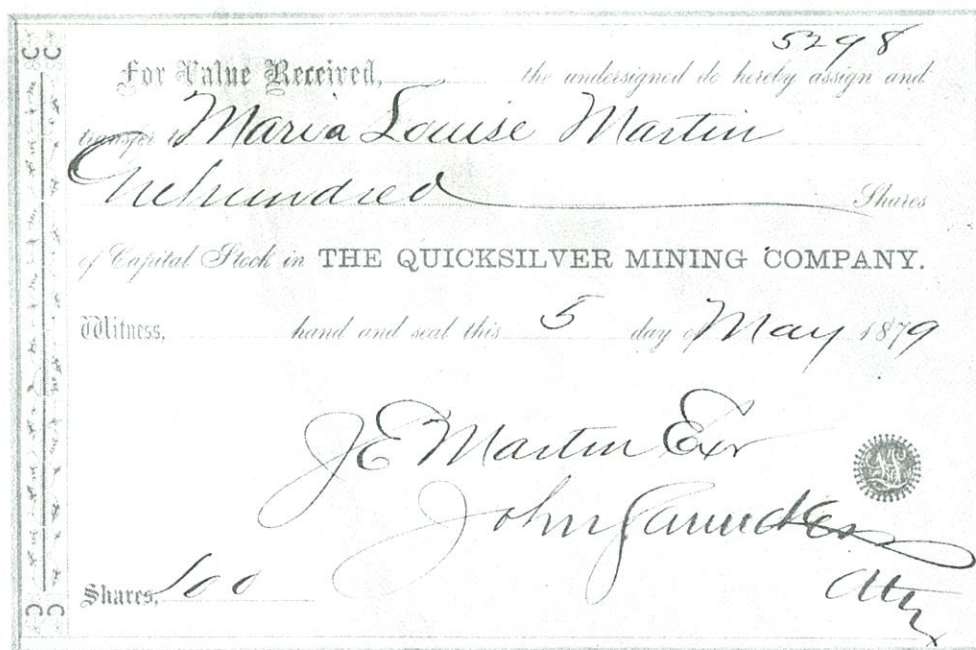 5298
For Value Received, the undersigned do hereby assign and
transfer to Maria Louise Martin
Onehundred Shares
of Capital Stock in THE QUICKSILVER MINING COMPANY.
Witness, hand and seal this 5 day of May 1879
J E Martin Exr
John Saunders
Atty
Shares, 100